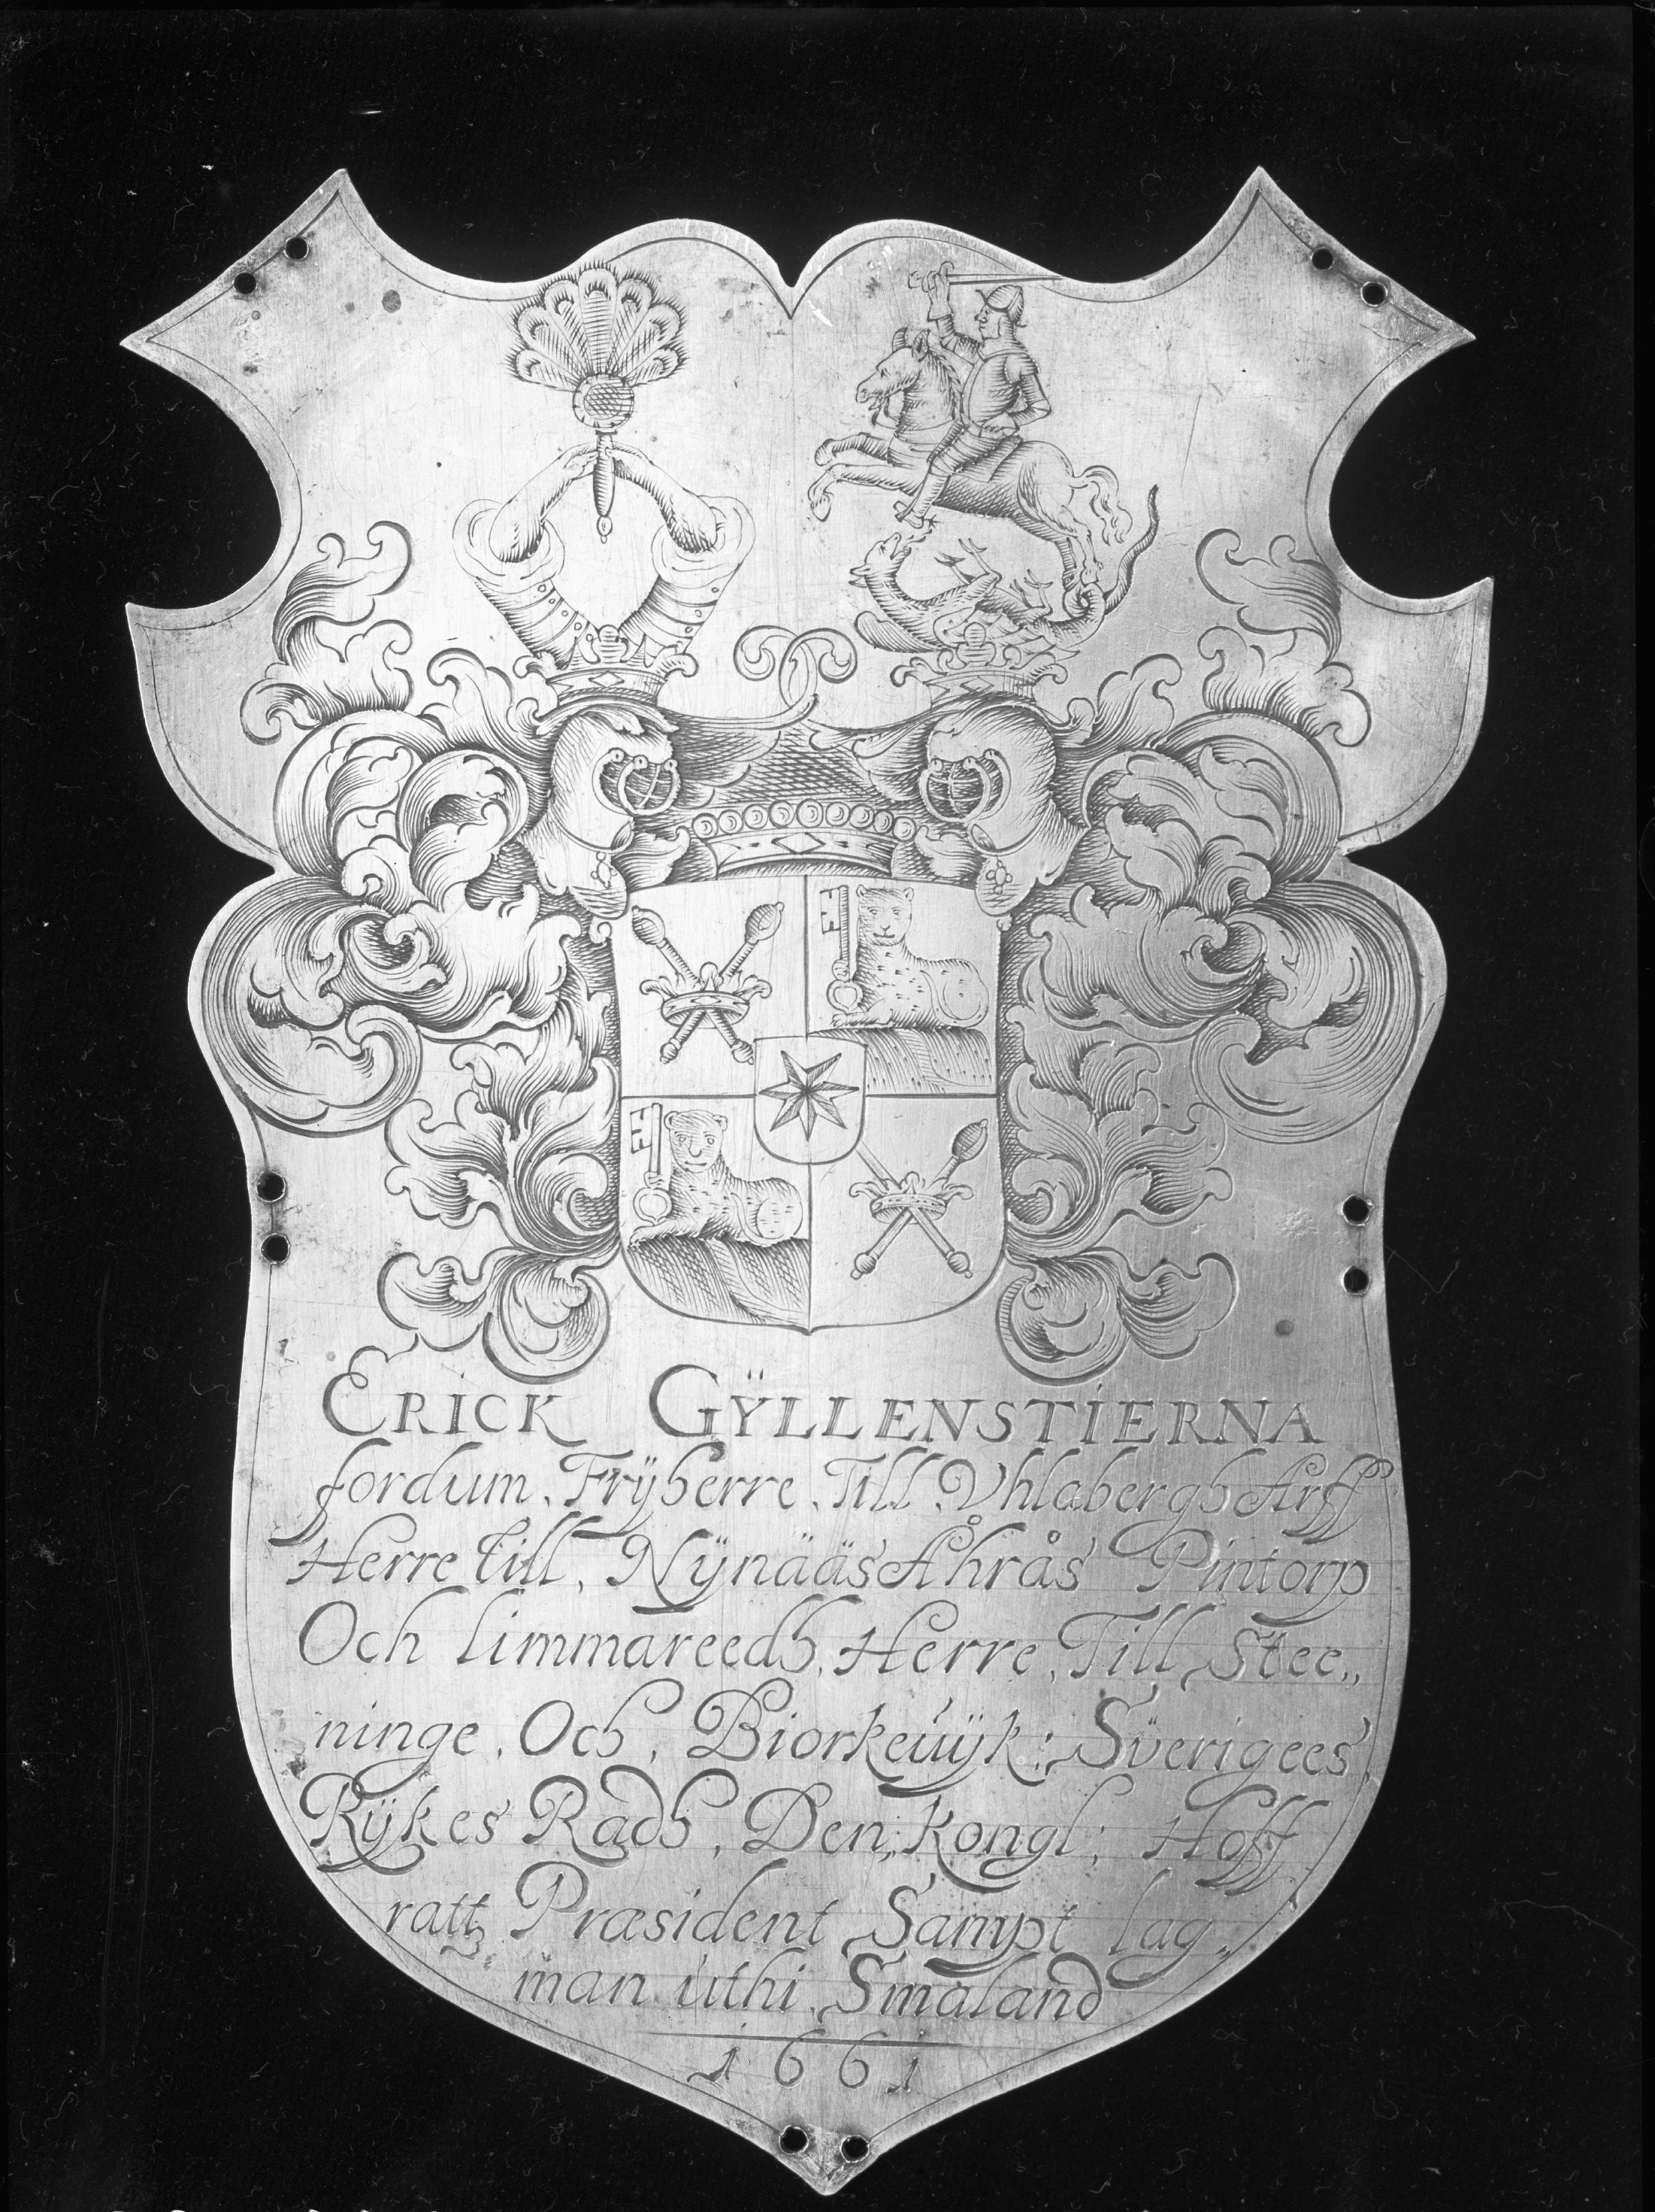 ERICK GŸLLENSTIERNA
fordum. Frÿherre. Till. Vhlabergh Arff
Herre till, Nÿnääs Åhrås Pintorp
Och limmareedh. Herre. Till Stee„
ninge. Och. Biorkeuÿk: Sverigees.
Rÿkes Radh. Den. Kongl: Hoff
ratz Præsident Sampt lag„
man uthi. Smaland
1661